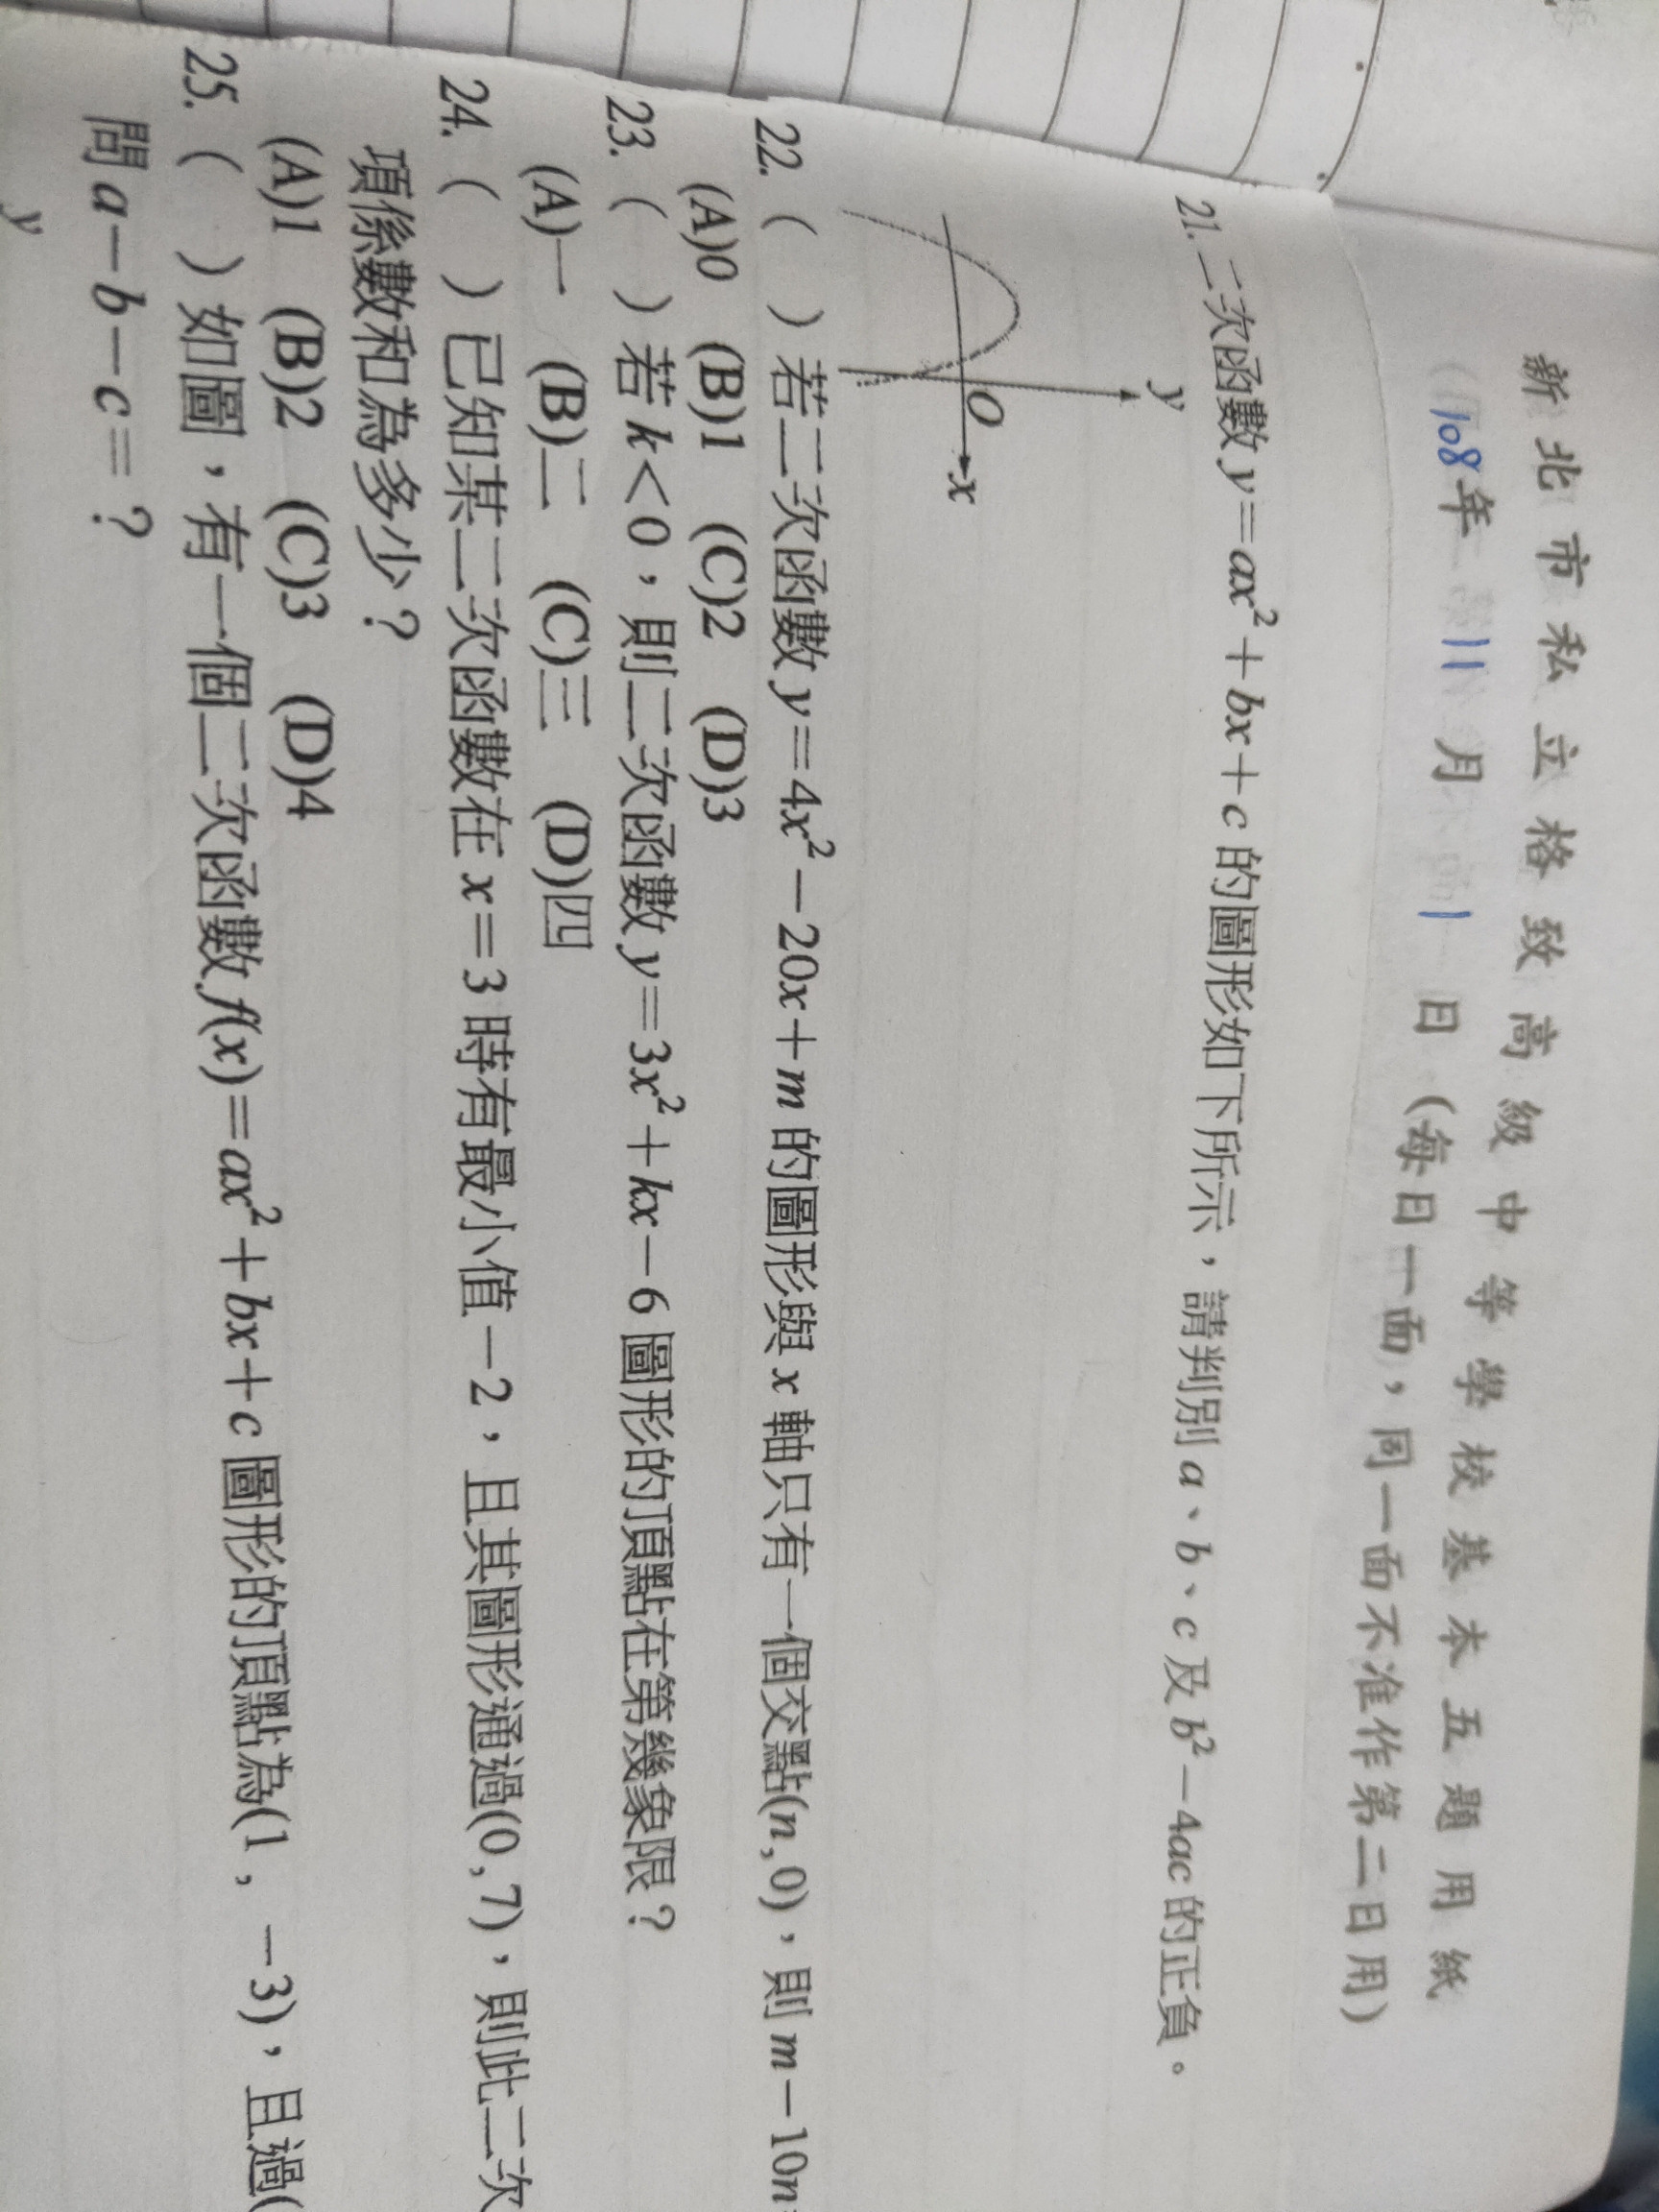 新北市私立格致高級中等學校基本五題用紙
108年 11 月 1 日 (每日一面，同一面不准作第二日用)
21.二次函數 y=ax²+bx+c 的圖形如下所示，請判別 a、b、c 及 b²-4ac 的正負。
y
O
x
22. ( ) 若二次函數 y=4x²-20x+m 的圖形與 x 軸只有一個交點(n,0)，則 m-10n
(A)0 (B)1 (C)2 (D)3
23. ( ) 若 k<0，則二次函數 y=3x²+kx-6 圖形的頂點在第幾象限？
(A)一 (B)二 (C)三 (D)四
24. ( ) 已知某二次函數在 x=3 時有最小值-2，且其圖形通過(0,7)，則此二次
項係數和為多少？
(A)1 (B)2 (C)3 (D)4
25. ( ) 如圖，有一個二次函數 f(x)=ax²+bx+c 圖形的頂點為(1，-3)，且過(
問 a-b-c=？
y